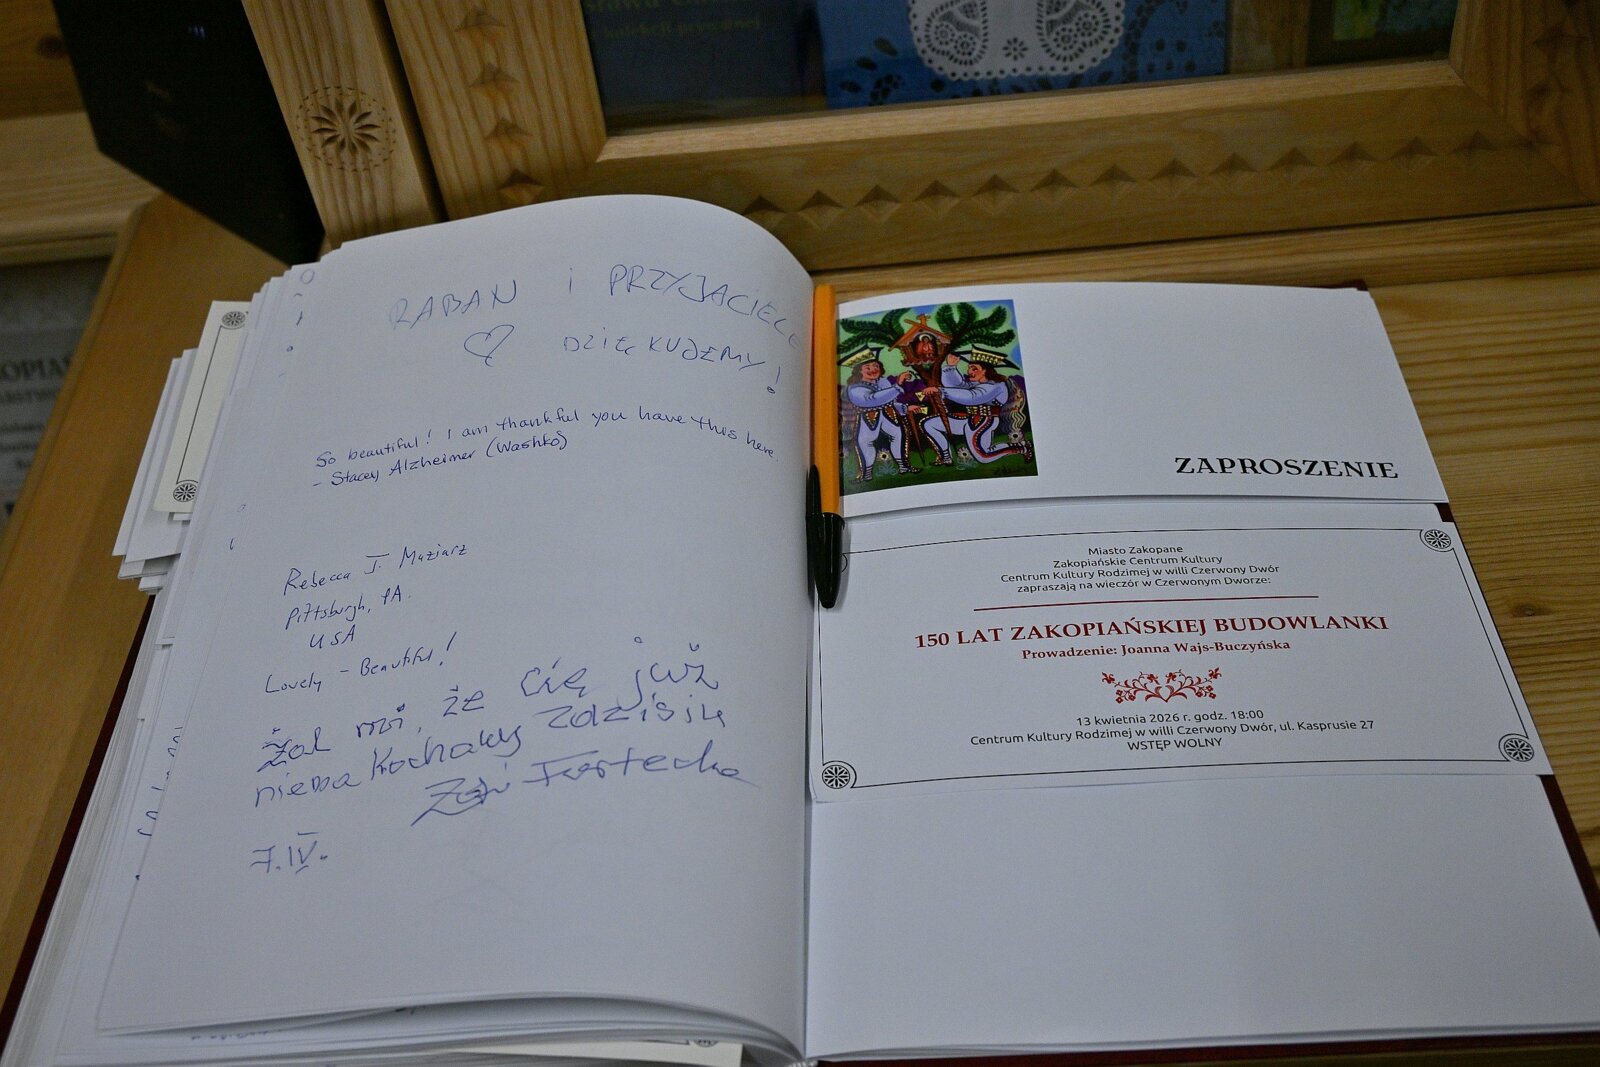 RABAN i PRZYJACIELE
DZIĘKUJEMY!
So beautiful! I am thankful you have this here.
- Stacey Alzheimer (Washko)
Rebecca J. Maziarz
Pittsburgh, PA.
USA
Lovely - Beautiful!
Żal mi, że Cię już
niema Kochany Zdzisiu
7.IV.
ZAPROSZENIE
Miasto Zakopane
Zakopiańskie Centrum Kultury
Centrum Kultury Rodzimej w willi Czerwony Dwór
zapraszają na wieczór w Czerwonym Dworze:
150 LAT ZAKOPIAŃSKIEJ BUDOWLANKI
Prowadzenie: Joanna Wajs-Buczyńska
13 kwietnia 2026 r. godz. 18:00
Centrum Kultury Rodzimej w willi Czerwony Dwór, ul. Kasprusie 27
WSTĘP WOLNY